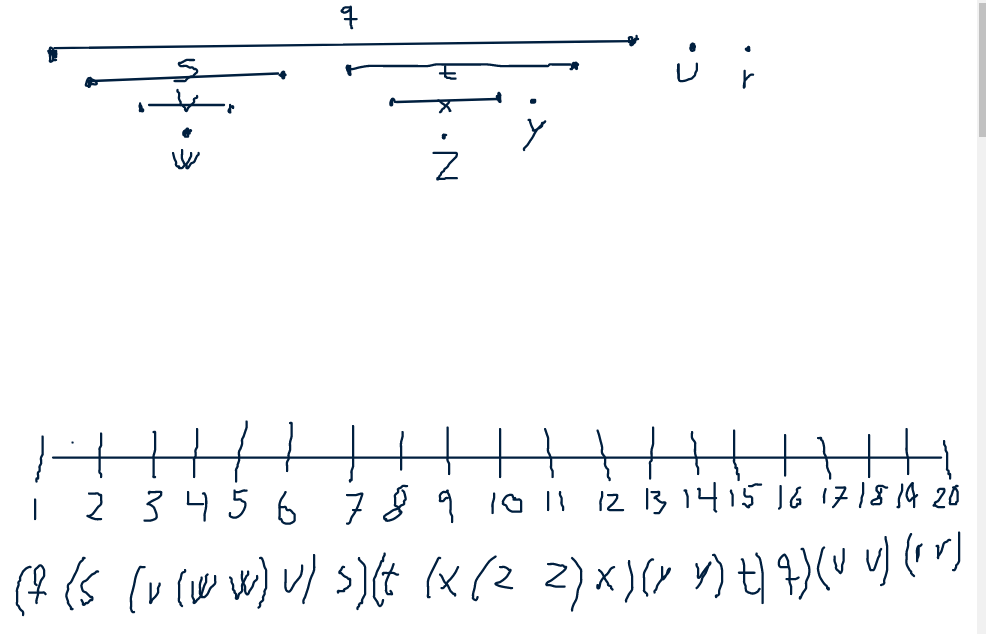 q
S t U r
V x y
W Z
1 2 3 4 5 6 7 8 9 10 11 12 13 14 15 16 17 18 19 20
(q (s (v (w w) v) s) (t (x (z z) x) (y y) t) q) (u u) (r r)